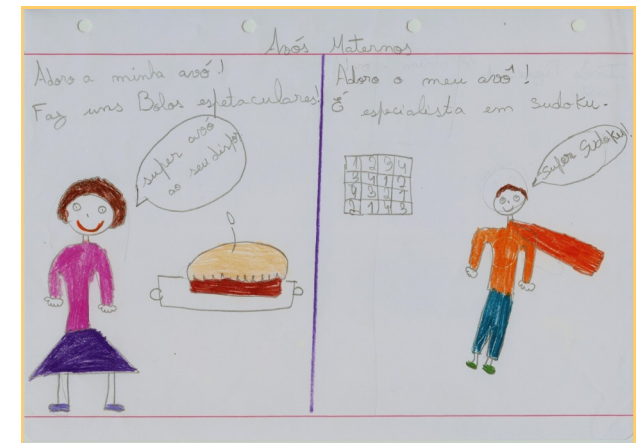 Avós Maternos
Adoro a minha avó!
Faz uns Bolos espetaculares!
super avó
ao seu dispor
Adoro o meu avô!
É especialista em sudoku.
1 2 3 4
3 4 1 2
4 3 1
2 1 4 3
Super Sudoku!